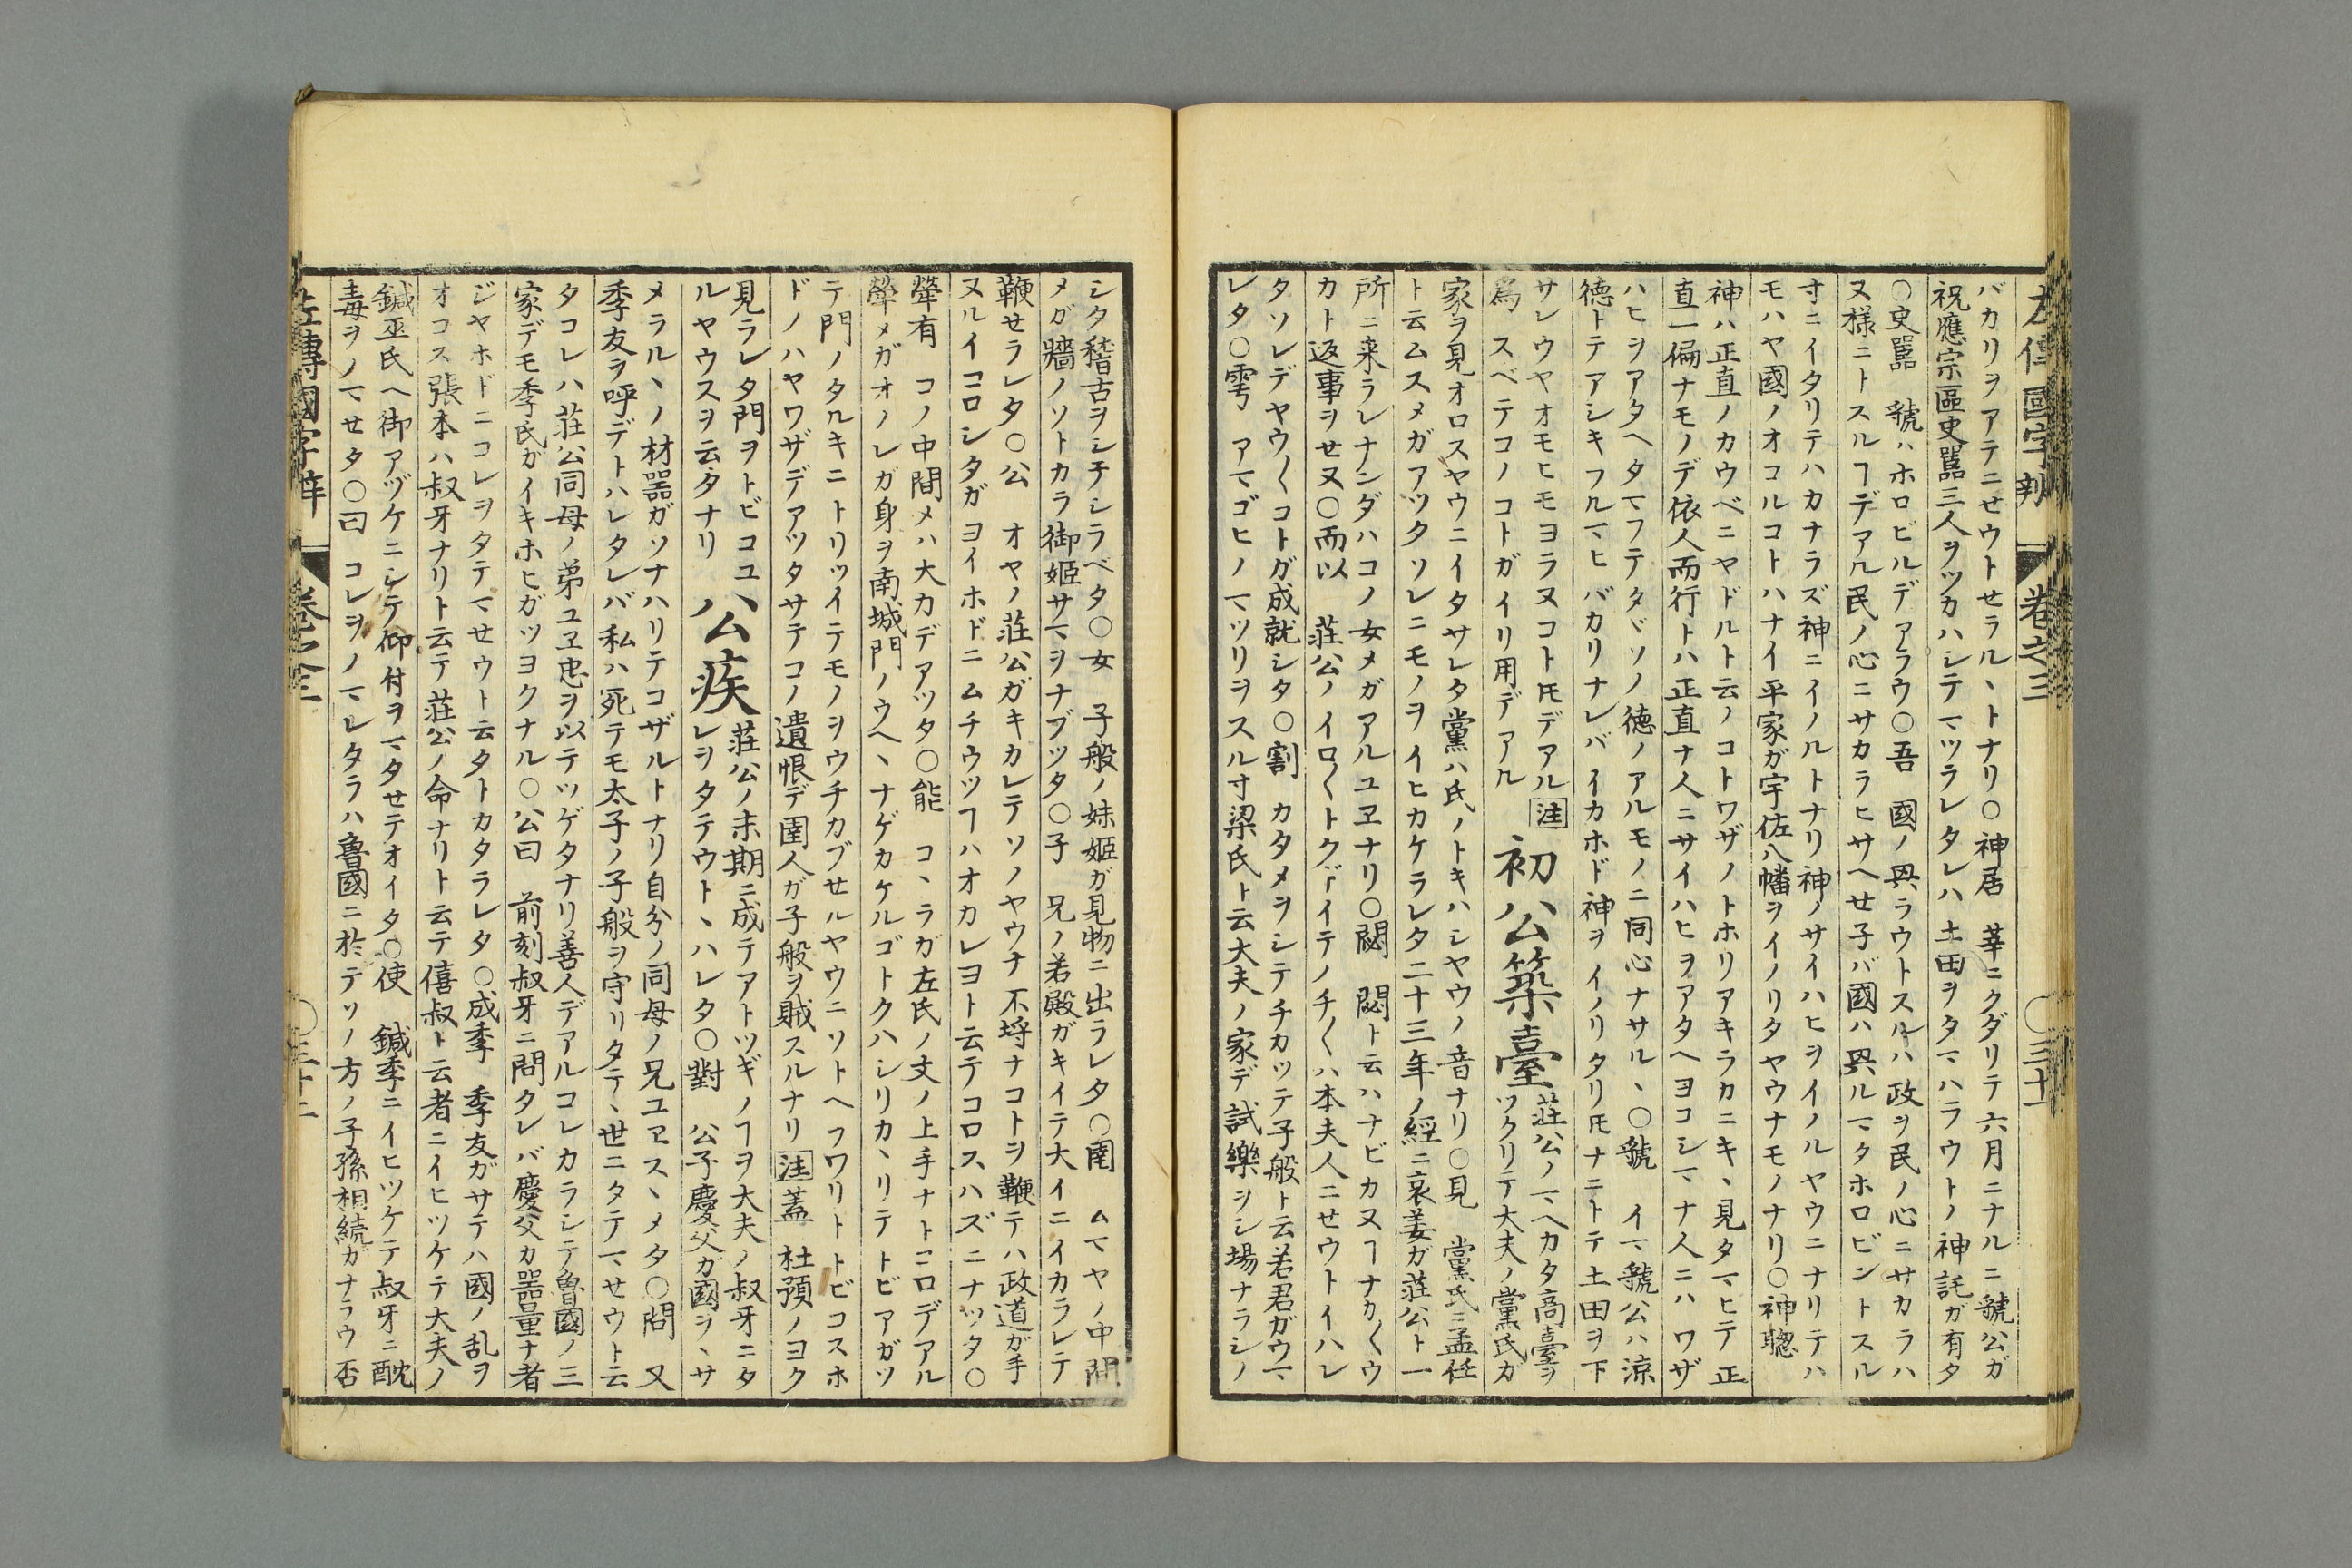 バカリヲアテニセウトセラルヽトナリ〇神居 莘ニクダリテ六月ニナルニ虢公ガ
祝應宗區史嚚三人ヲツカハシテマツラレタレハ土田ヲタマハラウトノ神託ガ有タ
〇史嚚 虢ハホロビルデアラウ〇吾 國ノ興ラウトスルハ政ヲ民ノ心ニサカラハ
ヌ様ニトスルヿデアル民ノ心ニサカラヒサヘセ子バ國ハ興ルマタホロビントスル
寸ニイタリテハカナラズ神ニイノルトナリ神ノサイハヒヲイノルヤウニナリテハ
モハヤ國ノオコルコトハナイ平家ガ宇佐八幡ヲイノリタヤウナモノナリ〇神聰
神ハ正直ノカウベニヤドルト云ノコトワザノトホリアキラカニキヽ見タマヒテ正
直一偏ナモノデ依人而行トハ正直ナ人ニサイハヒヲアタヘヨコシマナ人ニハワザ
ハヒヲアタヘタマフテタヾソノ德ノアルモノニ同心ナサルヽ〇虢 イマ虢公ハ涼
德トテアシキフルマヒバカリナレバイカホド神ヲイノリタリ𪜈ナニトテ土田ヲ下
サレウヤオモヒモヨラヌコト𪜈デアル注
爲 スベテコノコトガイリ用デアル
初公築臺
莊公ノマヘカタ高臺ヲ
ツクリテ大夫ノ黨氏カ
家ヲ見オロスヤウニイタサレタ黨ハ氏ノトキハシヤウノ音ナリ〇見 黨氏ニ孟任
ト云ムスメガアツタソレニモノヲイヒカケラレタ二十三年ノ經ニ哀姜ガ莊公ト一
所ニ来ラレナンダハコノ女メガアルユヱナリ〇閟 閟ト云ハナビカヌヿナカ〱ウ
カト返事ヲせヌ〇而以 莊公ノイロ〱トクドイテノチ〱ハ本夫人ニセウトイハレ
タソレデヤウ〱コトガ成就シタ〇割 カタメヲシテチカツテ子般ト云若君ガウマ
レタ〇雩 アマゴヒノマツリヲスル寸梁氏ト云大夫ノ家デ試樂ヲシ場ナラシノ
シタ稽古ヲシテシラベタ〇女 子般ノ妹姬ガ見物ニ出ラレタ〇圉 ムマヤノ中間
メガ牆ノソトカラ御姬サマヲナブツタ〇子 兄ノ若殿ガキイテ大イニイカラレテ
鞭セラレタ〇公 オヤノ莊公ガキカレテソノヤウナ不埒ナコトヲ鞭テハ政道ガ手
ヌルイコロシタガヨイホドニムチウツヿハオカレヨト云テコロスハズニナツタ〇
犖有 コノ中間メハ大カデアツタ〇能 コヽラガ左氏ノ文ノ上手ナトコロデアル
犖メガオノレガ身ヲ南城門ノウヘヽナゲカケルゴトクハシリカヽリテトビアガツ
テ門ノタルキニトリツイテモノヲウチカブセルヤウニソトヘフワリトトビコスホ
ドノハヤワザデアツタサテコノ遺恨デ圉人ガ子般ヲ賊スルナリ注蓋 杜預ノヨク
見ラレタ門ヲトビコユ
ルヤウスヲ云タナリ
公疾
莊公ノ末期ニ成テアトツギノヿヲ大夫ノ叔牙ニタ
レヲタテウトヽハレタ〇對 公子慶父ガ國ヲヽサ
メラルヽノ材噐ガソナハリテコザルトナリ自分ノ同母ノ兄ユヱスヽメタ〇問 又
季友ヲ呼デトハレタレバ私ハ死テモ太子ノ子般ヲ守リタテヽ世ニタテマセウト云
タコレハ莊公同母ノ弟ユヱ忠ヲ以テツゲタナリ善人デアルコレカラシテ魯國ノ三
家デモ季氏ガイキホヒガツヨクナル〇公曰 前刻叔牙ニ問タレバ慶父カ噐量ナ者
ジヤホドニコレヲタテマセウト云タトカタラレタ〇成季 季友ガサテハ國ノ乱ヲ
オコス張本ハ叔牙ナリト云テ莊公ノ命ナリト云テ僖叔ト云者ニイヒツケテ大夫ノ
鍼巫氏ヘ御アヅケニシテ仰付ヲマタセテオイタ〇使 鍼季ニイヒツケテ叔牙ニ酖
毒ヲノマセタ〇曰 コレヲノマレタラハ魯國ニ於テソノ方ノ子孫相続カナラウ否